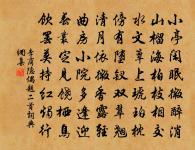 小亭閑眠微醉消
山榴海柏枝相交
水文簟上琥珀枕
傍有墮釵雙翠翹
清月依微香露輕
曲房小院多逢迎
春叢定見饒棲鳥
飲罷莫持紅燭行
李商隱偶題二首詞典
網集